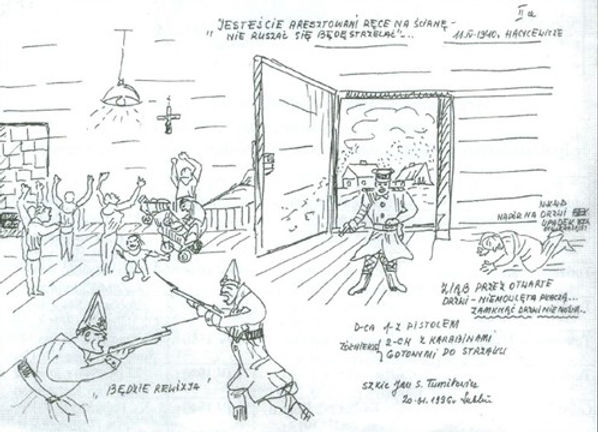 II a
"JESTEŚCIE ARESZTOWANI RĘCE NA ŚCIANĘ -
NIE RUSZAĆ SIĘ BĘDĘ STRZELAĆ"...
11.IV-1940. HACYCEWICZE
NKWD
NAPÓR NA DRZWI
UPADEK
ZIĄB PRZEZ OTWARTE
DRZWI - NIEMOWLĘTA PŁACZĄ...
ZAMKNĄĆ DRZWI NIE MOŻNA..
D-CA 1-Z PISTOLEM
ŻOŁNIERZY 2-CH Z KARABINAMI
GOTOWYMI DO STRZAŁU
"BĘDZIE REWIZJA"
szkic Jan S. Tumiłowicz
1996r Lublin